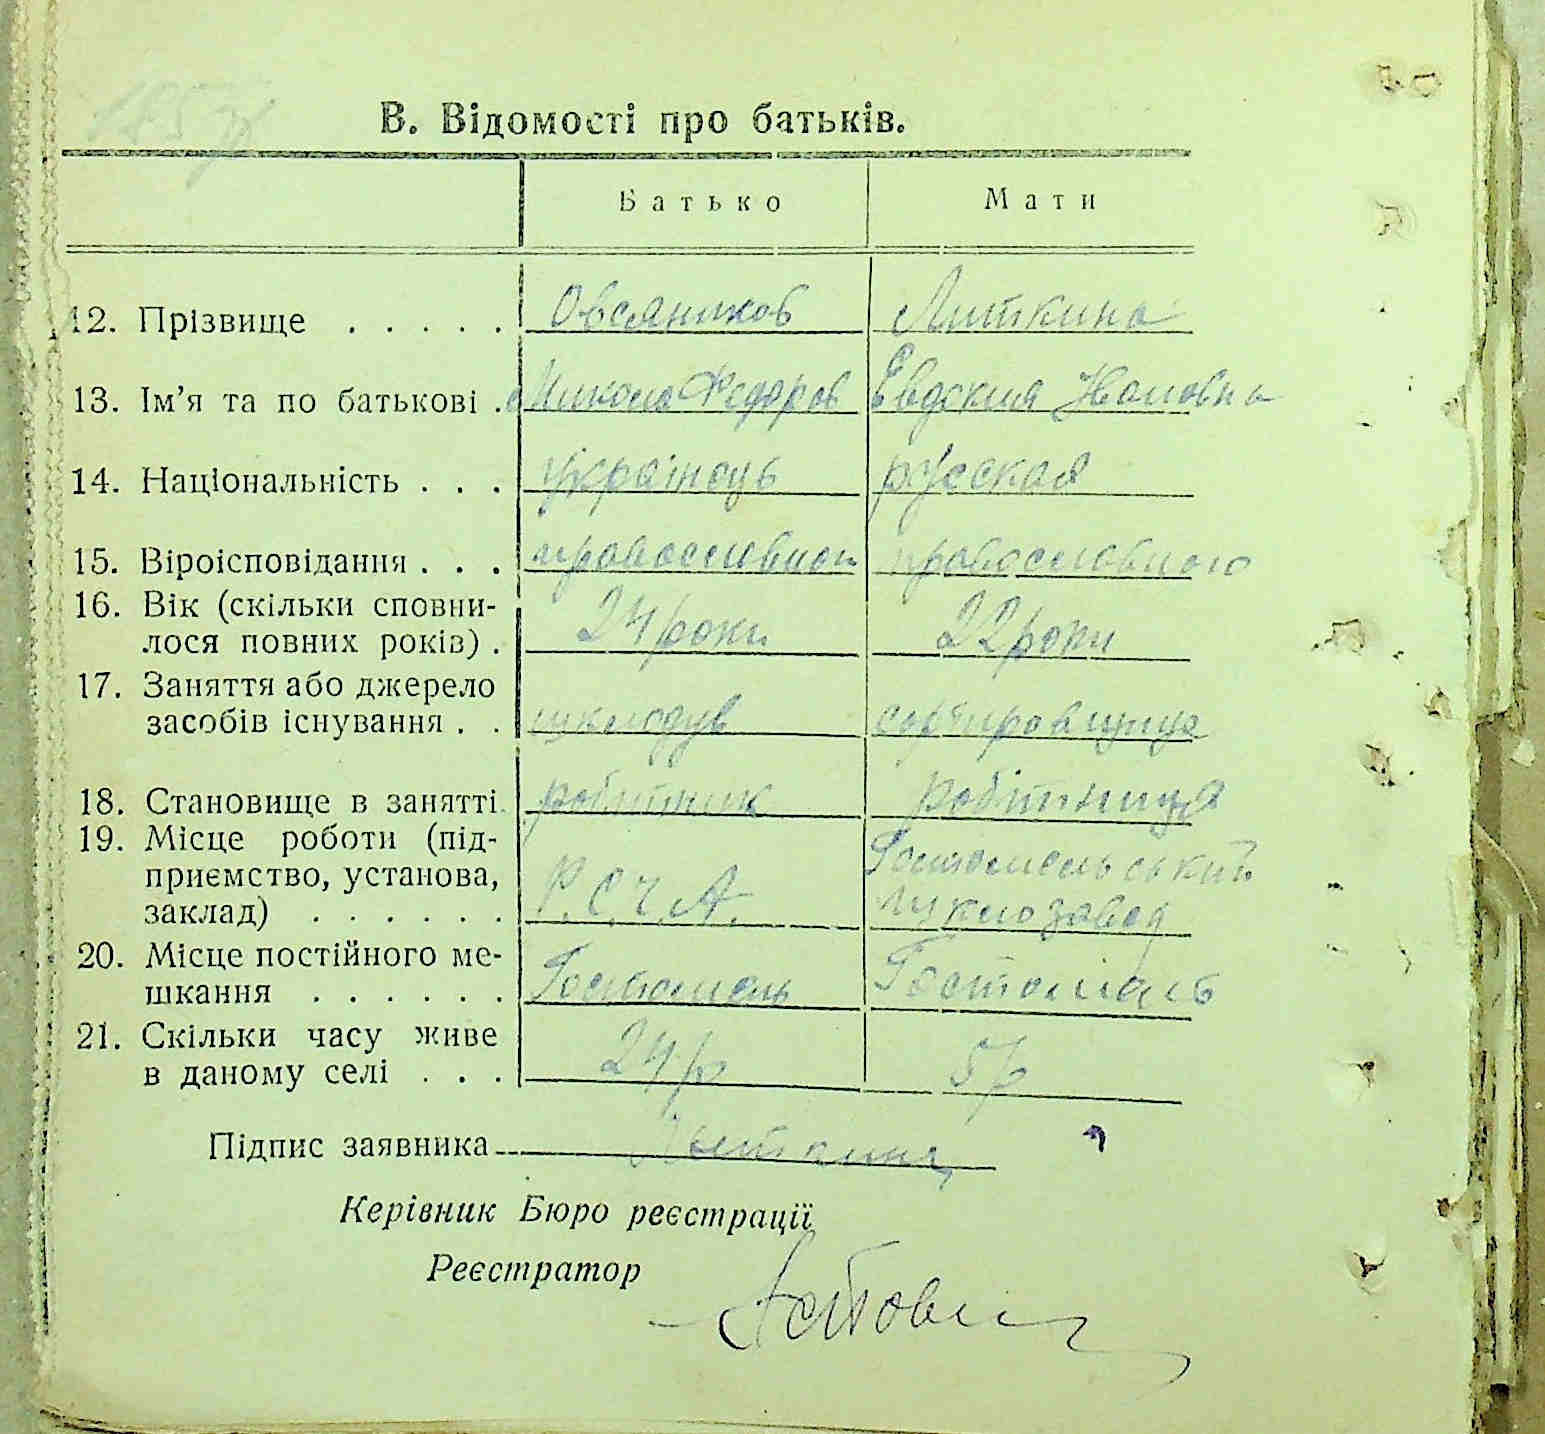 В. Відомості про батьків.
Батько Мати
12. Прізвище . . . . . Овсяников Литкина
13. Ім'я та по батькові . Микола Федоров Евдокия Ивановна
14. Національність . . . українець русская
15. Віроісповідання . . . православного
16. Вік (скільки сповни- 24 роки 22 роки
лося повних років) .
17. Заняття або джерело
засобів існування . . шклодув сортировщиця
18. Становище в занятті робітник робітниця
19. Місце роботи (під- Гостомельський
приємство, установа, Р.С.Ч.А. шклозавод
заклад) . . . . . .
20. Місце постійного ме- Гостомель Гостомель
шкання . . . . . .
21. Скільки часу живе 24 р 5 р
в даному селі . . .
Підпис заявника Литкина
Керівник Бюро реєстрації
Реєстратор